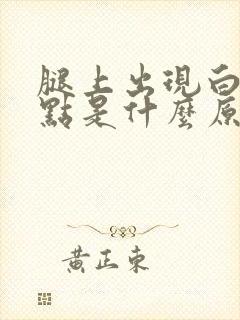 腿上出現白
點是什麼原
黃正東